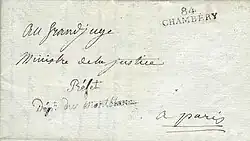 84
CHAMBÉRY
Au Grand juge
Ministre de la justice
Préfet
Dépt. du Montblanc
a paris